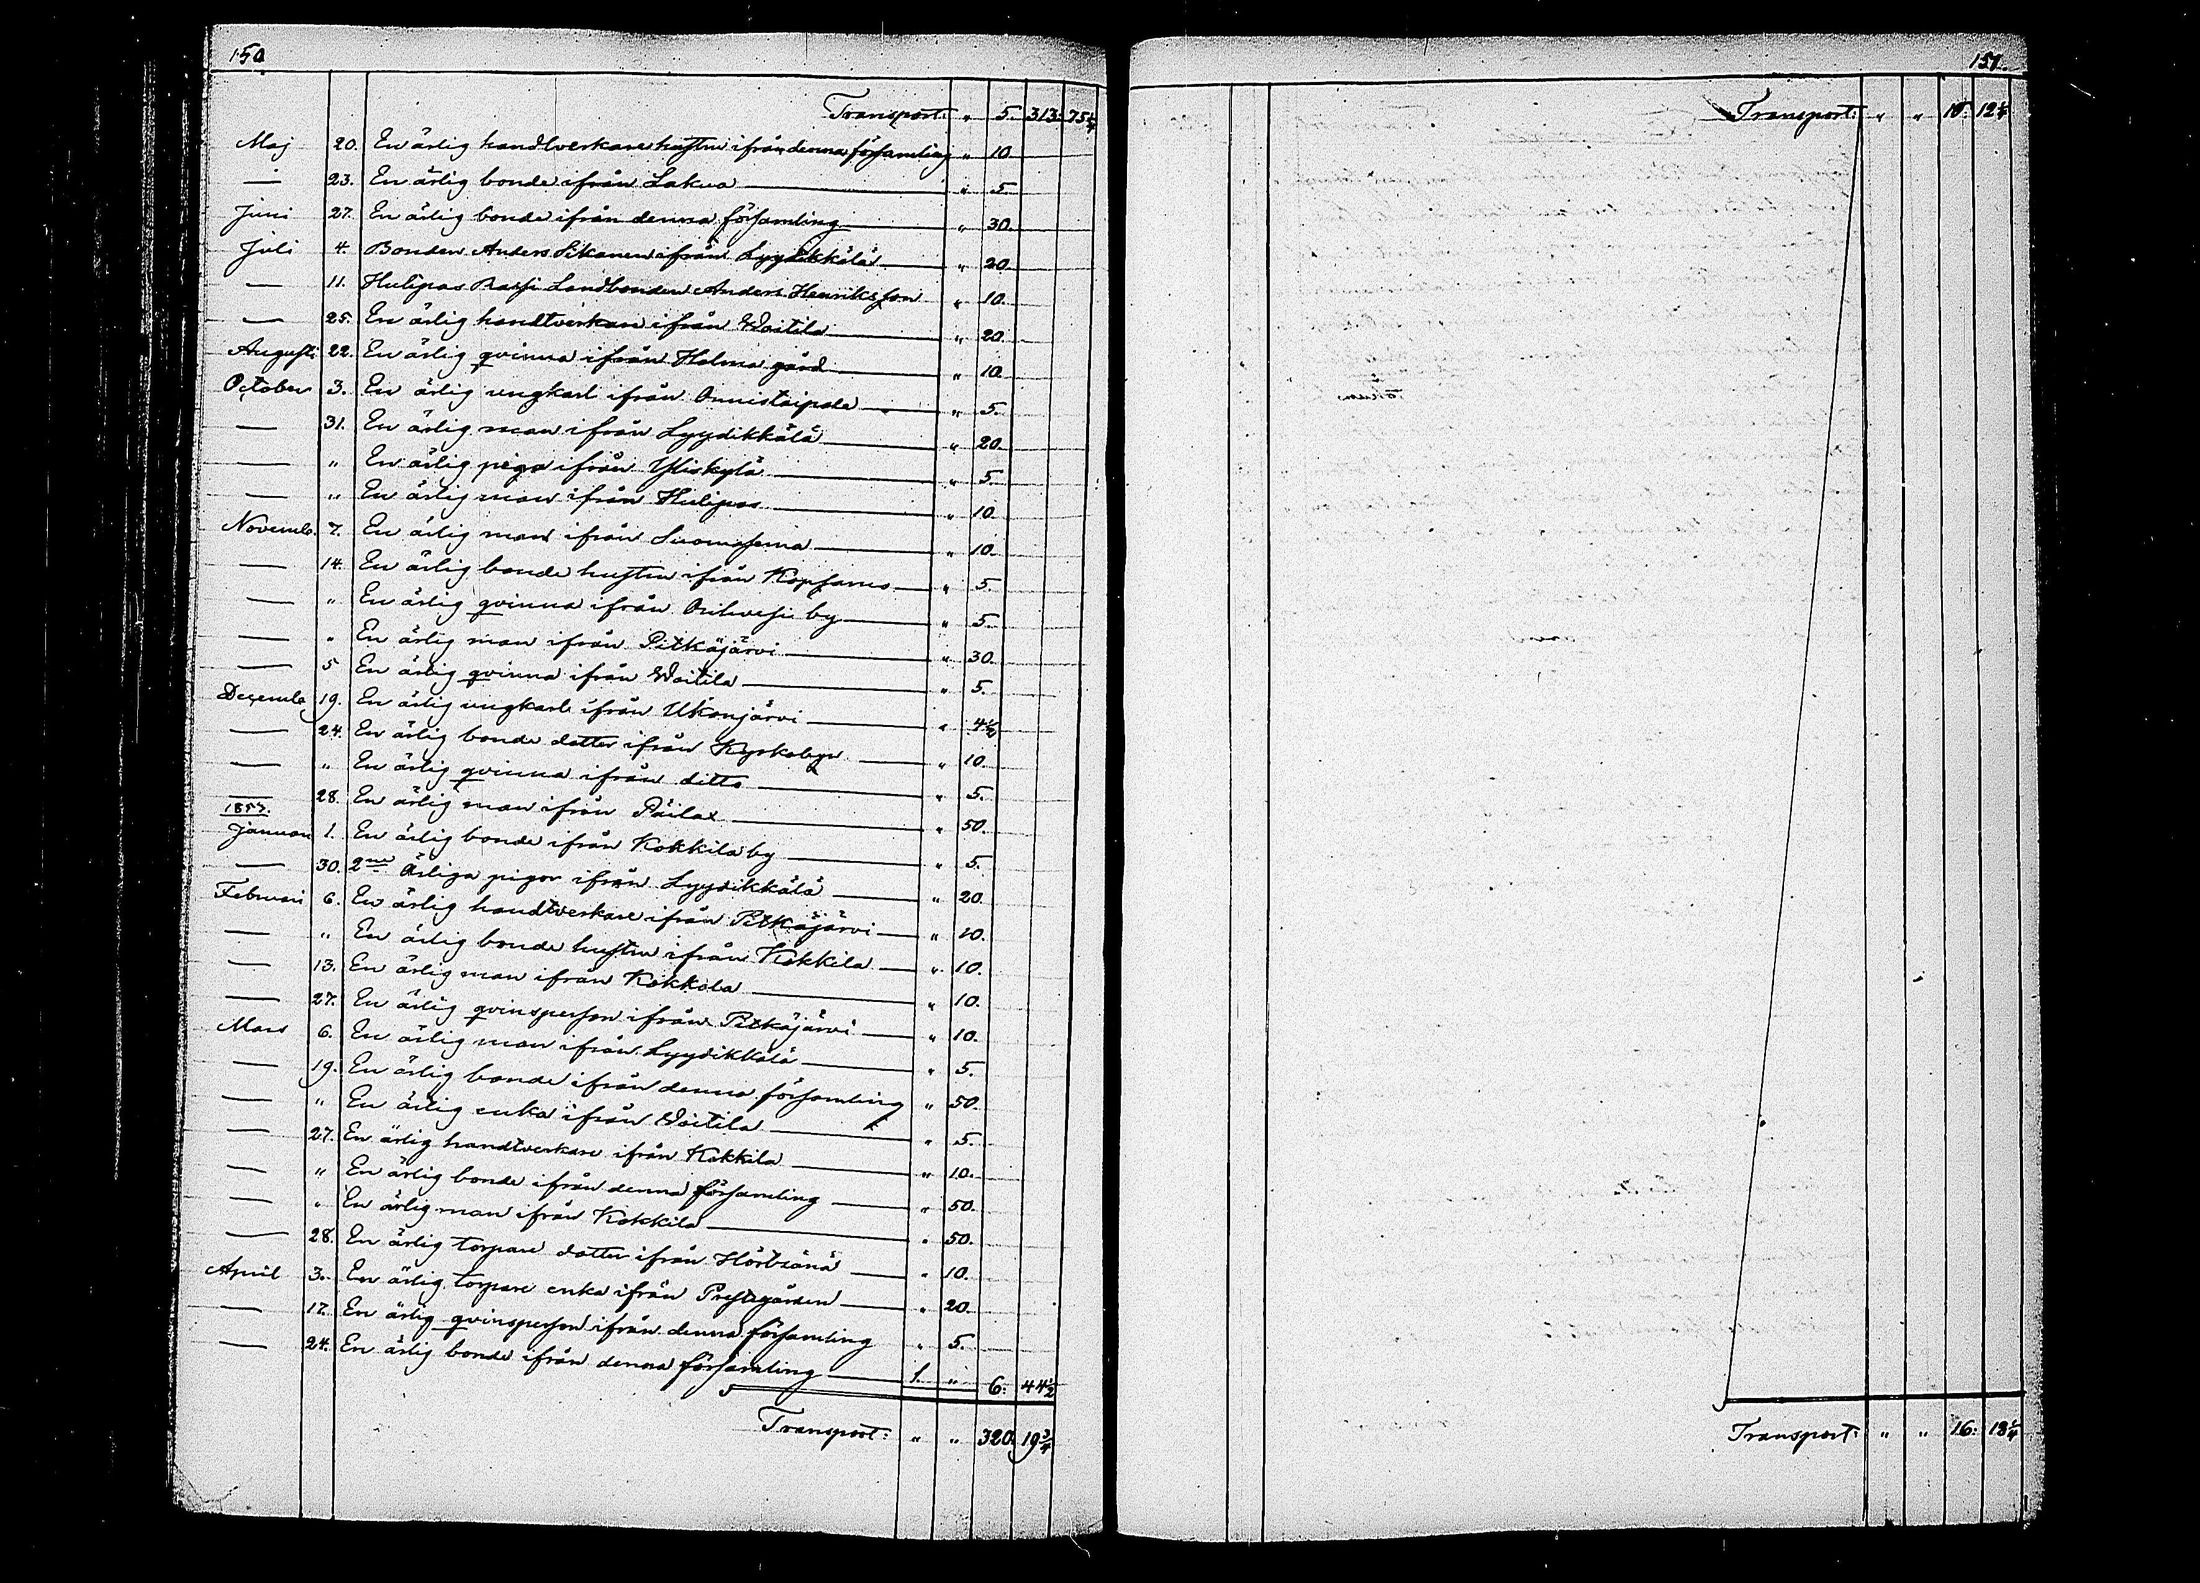 150
Transport: " 5. 313. 75 1/4
Maj 20. En ärlig handtverkare hustru ifrån denna församling " 10
— 23. En ärlig bonde ifrån Lakua " 5.
Juni 27. En ärlig bonde ifrån denna församling " 30.
Juli 4. Bonden Anders Sikanen ifrån Lyydikkälä " 20.
— 11. Hulipas Rassi Landbonden Anders Henriksson " 10.
— 25. En ärlig handtverkare ifrån Woitila " 20.
Augusti 22. En ärlig qvinna ifrån Helma gård " 10.
October 3. En ärlig ungkarl ifrån Onnistaipale " 5.
— 31. En ärlig man ifrån Lyydikkälä " 20.
— " En ärlig piga ifrån Yliskylä " 5.
— " En ärlig man ifrån Hulipas " 10.
Novemb. 7. En ärlig man ifrån Suomasema " 10.
— 14. En ärlig bonde hustru ifrån Kopsamo " 5.
— " En ärlig qvinna ifrån by " 5.
— " En ärlig man ifrån Pitkäjärvi " 30.
— 5 En ärlig qvinna ifrån Woitila " 5.
Decemb. 19. En ärlig ungkarl ifrån Ukonjärvi " 4 1/2
— 24. En ärlig bonde dotter ifrån Kyrkobyn " 10.
— " En ärlig qvinna ifrån ditto " 5.
— 28. En ärlig man ifrån Päilax " 50.
1853.
Januari 1. En ärlig bonde ifrån Kokkila by " 5.
— 30. 2ne Ärliga pigor ifrån Lyydikkälä " 20.
Februari 6. En ärlig handtverkare ifrån Pitkäjärvi " 10.
— " En ärlig bonde hustru ifrån Kokkila " 10.
— 13. En ärlig man ifrån Kokkola " 10.
— 27. En ärlig qvinsperson ifrån Pitkäjärvi " 10.
Mars 6. En ärlig man ifrån Lyydikkälä " 5.
— 19. En ärlig bonde ifrån denna församling " 50.
— " En ärlig enka ifrån Woitila " 5.
— 27. En ärlig handtverkare ifrån Kokkila " 10.
— " En ärlig bonde ifrån denna församling " 50.
— " En ärlig man ifrån Kokkila " 50.
— 28. En ärlig torpare dotter ifrån Hörtsänä " 10.
April 3. En ärlig torpare enka ifrån Prestgården " 20.
— 17. En ärlig qvinsperson ifrån denna församling " 5.
— 24. En ärlig bonde ifrån denna församling 1. " 6: 44 1/2
Transport: " " 320. 19 3/4
151.
Transport: " " 16: 12 1/4
Transport: " " 16: 18 1/4